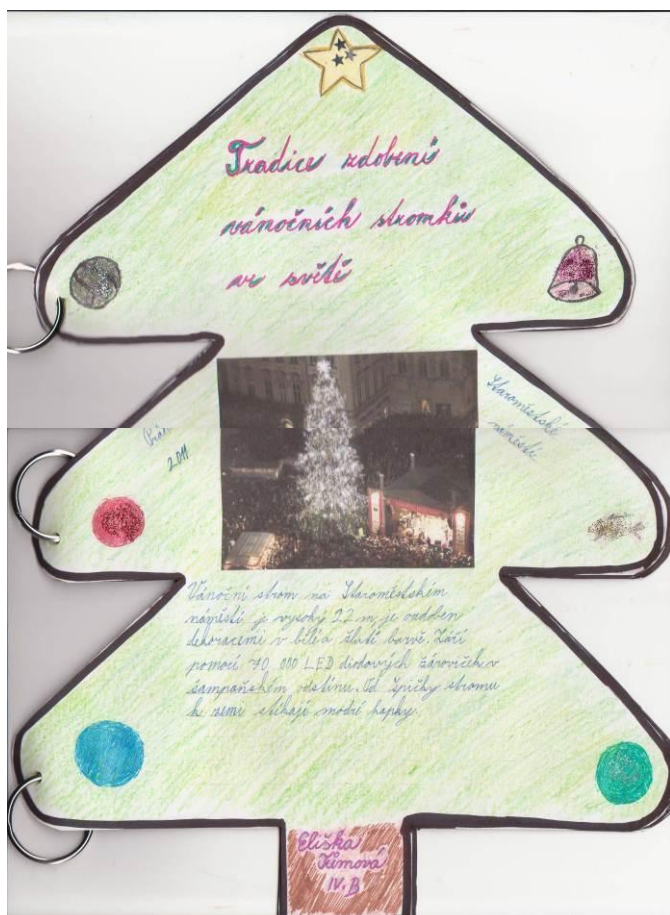 Tradice zdobení
vánočních stromků
ve světě
Staroměstské
náměstí
2011
Vánoční strom na Staroměstském
náměstí je vysoký 22 m je ozdoben
dekoracemi v bílé a zlaté barvě. Září
pomocí 70 000 LED diodových žároviček v
šampaňském odstínu. Od špičky stromu
k zemi stékají modré kapky.
Eliška
IV. B